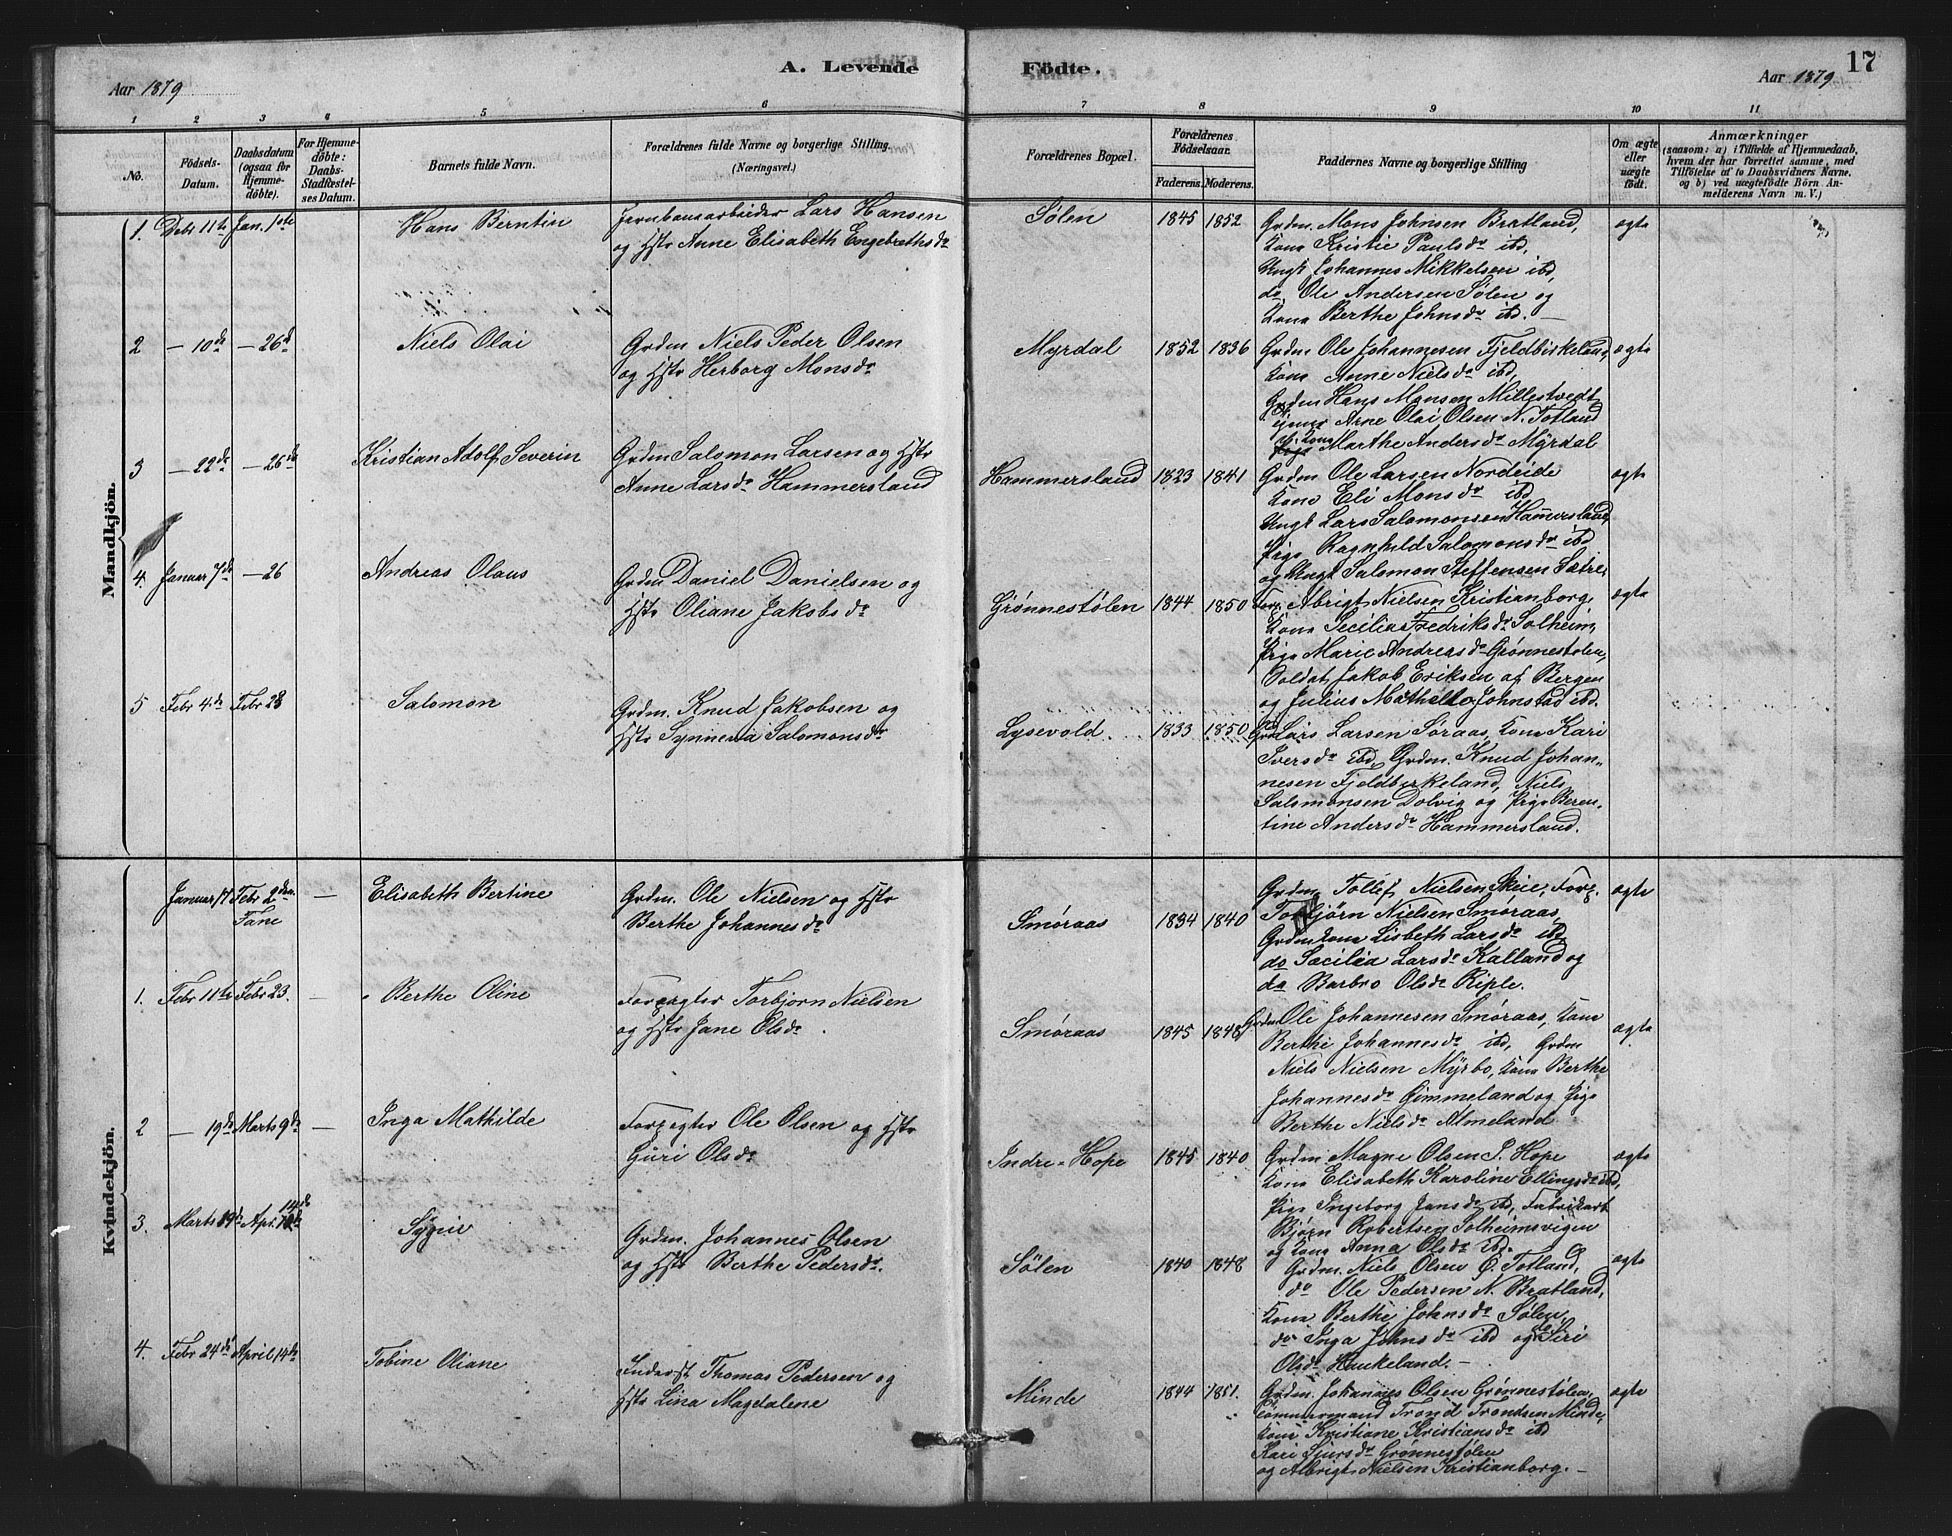 A. Levende Födte.
17
Aar 1879
Aar 1879
1 2 3 4 5 6 7 8 9 10 11
No.
Födsels-Datum.
Daabsdatum (ogsaa for Hjemmedöbte).
For Hjemmedöbte: Daabs-Stadfæstelses Datum.
Barnets fulde Navn.
Forældrenes fulde Navne og borgerlige Stilling. (Næringsvei.)
Forældrenes Bopæl.
Forældrenes Födselsaar.
Faderens. Moderens.
Faddernes Navne og borgerlige Stilling
Om ægte eller uægte født.
Anmærkninger
(saasom: a) i Tilfælde af Hjemmedaab,
hvem der har forrettet samme, med
Tilföielse af to Daabsvidners Navne.
og b) ved uægtefödte Börn An-
melderens Navn m. V.)
Mandkjön.
1. Debr 11te Jan. 1ste
Hans Berntin
Jernbanearbeider Lars Hansen
og Hstr Anne Elisabeth Engebrethsdr
Sølen 1845 1852
Grdm. Mons Johnsen Bratland,
Kone Kristie Paulsdr ibd,
Ungk. Johannes Mikkelsen ibd,
do. Ole Andersen Sølen og
Kone Berthe Johnsdr ibd. —
ægte
2 — 10de — 26d
Niels Olai
Grdm Niels Peder Olsen
og Hstr Herborg Monsdr
Myrdal 1852 1836
Grdm Ole Johannesen Fjeldbirkeland,
Kone Anne Nielsdr ibd,
Grdm Hans Monsen Millestvedt
Arne Olai Olsen N. Totland
Kone Marthe Andersdr Myrdal
ægte
3 — 22de — 26de
Kristian Adolf Severin
Grdm Salomon Larsen og Hstr
Anne Larsdr Hammersland
Hammersland 1823 1841
Grdm Ole Larsen Nordeide
Kone Eli Monsdr ibd
Ungk Lars Salomonsen Hammersland,
Pige Ragnhild Salomonsdr ibd
og Ungk Salomon Steffensen Sætre.
ægte
4. Januar 7de — 26
Andreas Olaus
Grdm Daniel Danielsen og
Hstr Oliane Jakobsdr
Grønnestølen 1844 1850
Forp. Abrigt Nielsen Kristianborg
Kone Secilia Fredriksdr Solheim,
Pige Marie Andreasdr Grønnestølen,
Soldat Jakob Eriksen af Bergen
og Julius Johnstad ibd.
ægte
5 Febr 4de Febr 23
Salomon
Grdm. Knud Jakobsen og
Hstr Synneva Salomonsdr
Lysevold. 1833 1850
Grdm Lars Larsen Søraas, Kone Kari
Iversdr ibd, Grdm. Knud Johan-
nesen Fjeldbirkeland, Niels
Salomonsen Dolvig og Pige Beren-
tine Andersdr Hammersland.
Kvindekjön.
Januar 17 Febr 2den Fane —
Elisabeth Bertine
Grdm. Ole Nielsen og Hstr
Berthe Johannesdr
Smøraas 1834 1840
Grdm. Tollef Nielsen Skeie, Forp.
Torbjörn Nielsen Smøraas,
Grdm Kone Lisbeth Larsdr ibd,
do Sæcilia Larsdr Kalland og
do Barbro Olsdr Riple.
ægte
1. Febr 11te Febr 23. —
Berthe Oline
Forpagter Torbjorn Nielsen
og Hstr Jane Olsdr
Smøraas 1845 1848
Grdm Ole Johannesen Smøraas, Kone
Berthe Johannesdr ibd, Grdm
Niels Nielsen Myrbo, Kone Berthe
Johannesdr Gimmeland og Pige
Berthe Nielsdr Almeland
ægte
2 — 19de Marts 9de —
Inga Mathilde
Forpagter Ole Olsen og Hstr
Guri Olsdr
Indre-Hope 1845 1840
Grdm Magne Olsen I. Hope
Kone Elisabeth Karoline Ellingsdr ibd,
Pige Ingeborg Jansdr ibd, Fabrikarb
Bjørn Robertsen Solheimsvigen
og Kone Anna Olsdr ibd.
ægte
3. Marts 19de Apr. 14de
Sygni
Grdm. Johannes Olsen
og Hstr Berthe Pedersdr.
Sølen 1840 1848
Grdm. Niels Olsen Ø. Totland,
do Ole Pedersen N. Bratland,
Kone Berthe Johnsdr Sølen,
do Inga Johnsdr ibd og do Siri
Olsdr Haukeland. —
ægte
4. Febr 24de April 14de
Tobine Oliane
Inderst Thomas Pedersen og
Hstr Lina Magdalene
Minde 1844 1851.
Grdm. Johannes Olsen Grønnestølen,
Tømmermand Trond Trondsen Minde,
Kone Kristiane Kristiansdr ibd
Kari Sjursdr Grønnestølen
og Albrigt Nielsen Kristianborg. —
ægte